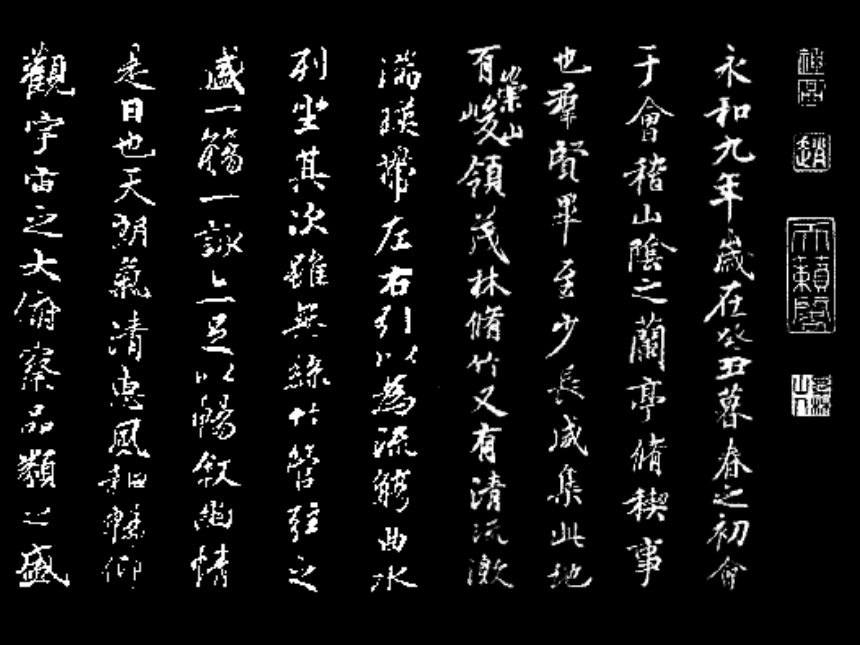 趙
天籟閣
永和九年歲在癸丑暮春之初會
于會稽山陰之蘭亭脩稧事
也羣賢畢至少長咸集此地
有崇山峻領茂林脩竹又有清流激
湍暎帶左右引以為流觴曲水
列坐其次雖無絲竹管弦之
盛一觴一詠亦足以暢敘幽情
是日也天朗氣清惠風和暢仰
觀宇宙之大俯察品類之盛